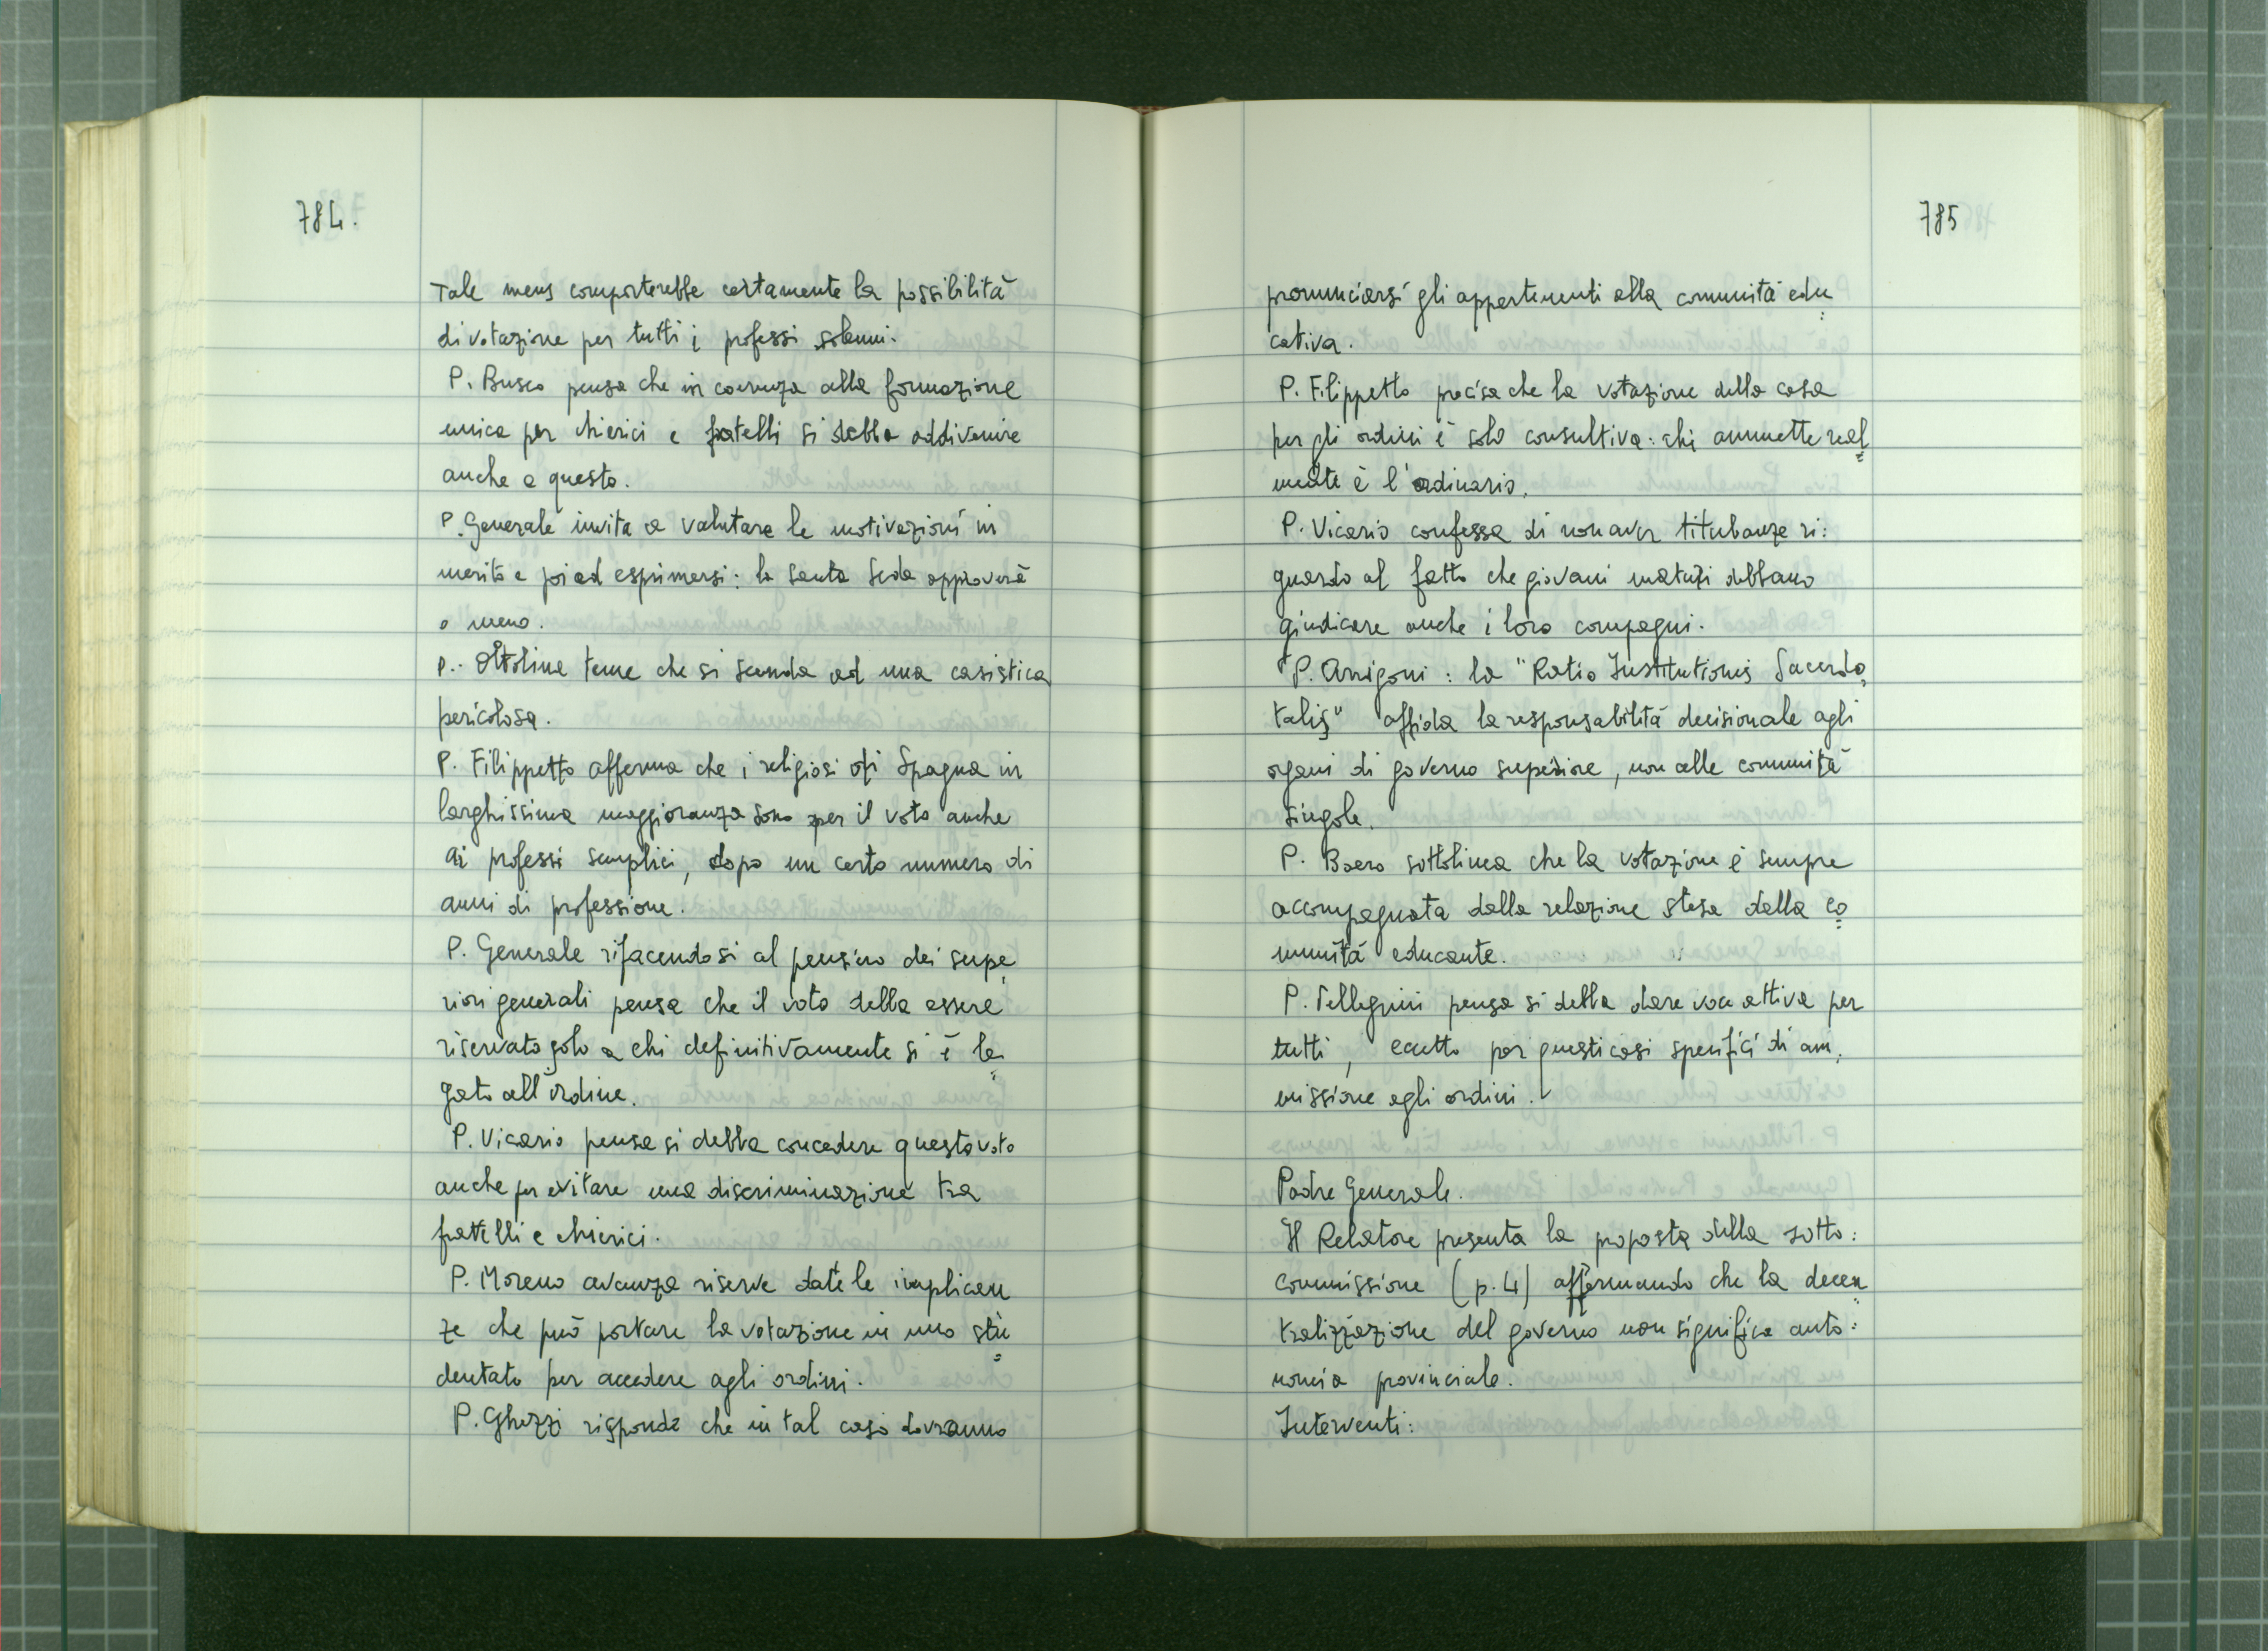 784.
Tale mens comporterebbe certamente la possibilità
di votazione per tutti i professi solenni.
P. Busco pensa che in coerenza alla formazione
unica per chierici e fratelli si debba addivenire
anche a questo.
P. Generale invita a valutare le motivazioni in
merito e poi ad esprimersi: la Santa Sede approverà
o meno.
P. Ottolina teme che si scenda ad una casistica
pericolosa.
P. Filippetto afferma che i religiosi di Spagna in
larghissima maggioranza sono per il voto anche
ai professi semplici, dopo un certo numero di
anni di professione.
P. Generale rifacendosi al pensiero dei supe
riori generali pensa che il voto debba essere
riservato solo a chi definitivamente si è le=
gato all'ordine.
P. Vicario pensa si debba concedere questo voto
anche per evitare una discriminazione tra
fratelli e chierici.
P. Moreno avanza riserve date le implican
ze che può portare la votazione in uno stu=
dentato per accedere agli ordini.
P. Ghezzi risponde che in tal caso dovranno
785
pronunciarsi gli appartenenti alla comunità edu=
cativa.
P. Filippetto precisa che la votazione della casa
per gli ordini è solo consultiva: chi ammette real=
mente è l'ordinario.
P. Vicario confessa di non aver titubanze ri:
guardo al fatto che giovani maturi debbano
giudicare anche i loro compagni.
P. Arrigoni: la "Ratio Institutionis Sacerdo=
talis" affida la responsabilità decisionale agli
organi di governo superiore, non alle comunità
singole.
P. Boero sottolinea che la votazione è sempre
accompagnata dalla relazione stesa dalla co=
munità educante.
P. Pellegrini pensa si debba dare voce attiva per
tutti, eccetto per questi casi specifici di am=
missione agli ordini.
Padre Generale.
Il Relatore presenta la proposta della sotto:
commissione (p. 4) affermando che la decen=
tralizzazione del governo non significa auto:
nomia provinciale.
Interventi: